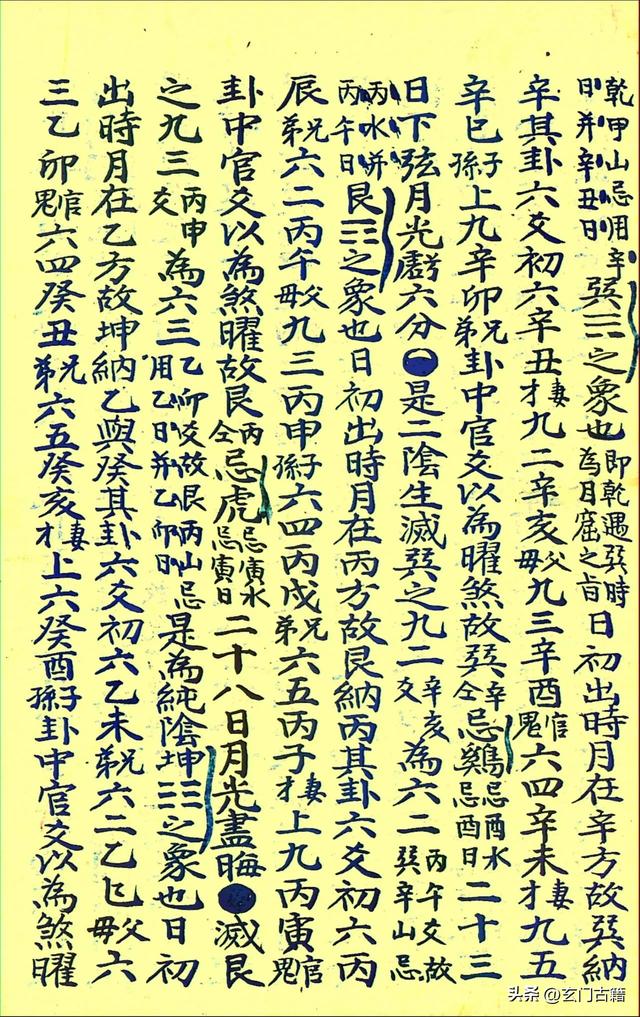 乾甲山忌用辛日并辛丑日巽☴之象也即乾遇巽時為月窟之旨日初出時月在辛方故巽納
辛其卦六爻初六辛丑妻才九二辛亥父母九三辛酉官鬼六四辛未妻才九五
辛巳子孫上九辛卯兄弟卦中官爻以為曜煞故巽辛仝忌鷄忌酉水忌酉日二十三
日下弦月光虧六分是二陰生滅巽之九二辛亥爻為六二丙午爻故巽辛山忌
丙水并丙午日艮☶之象也日初出時月在丙方故艮納丙其卦六爻初六丙
辰兄弟六二丙午父母九三丙申子孫六四丙戌兄弟六五丙子妻才上九丙寅官鬼
卦中官爻以為煞曜故艮丙仝忌虎忌寅水忌寅日二十八日月光盡晦滅艮
之九三丙申爻為六三乙卯爻故艮丙山忌用乙日并乙卯日是為純陰坤☷之象也日初
出時月在乙方故坤納乙與癸其卦六爻初六乙未兄弟六二乙巳父母六
三乙卯官鬼六四癸丑兄弟六五癸亥妻才上六癸酉子孫卦中官爻以為煞曜
头条 @玄门古籍